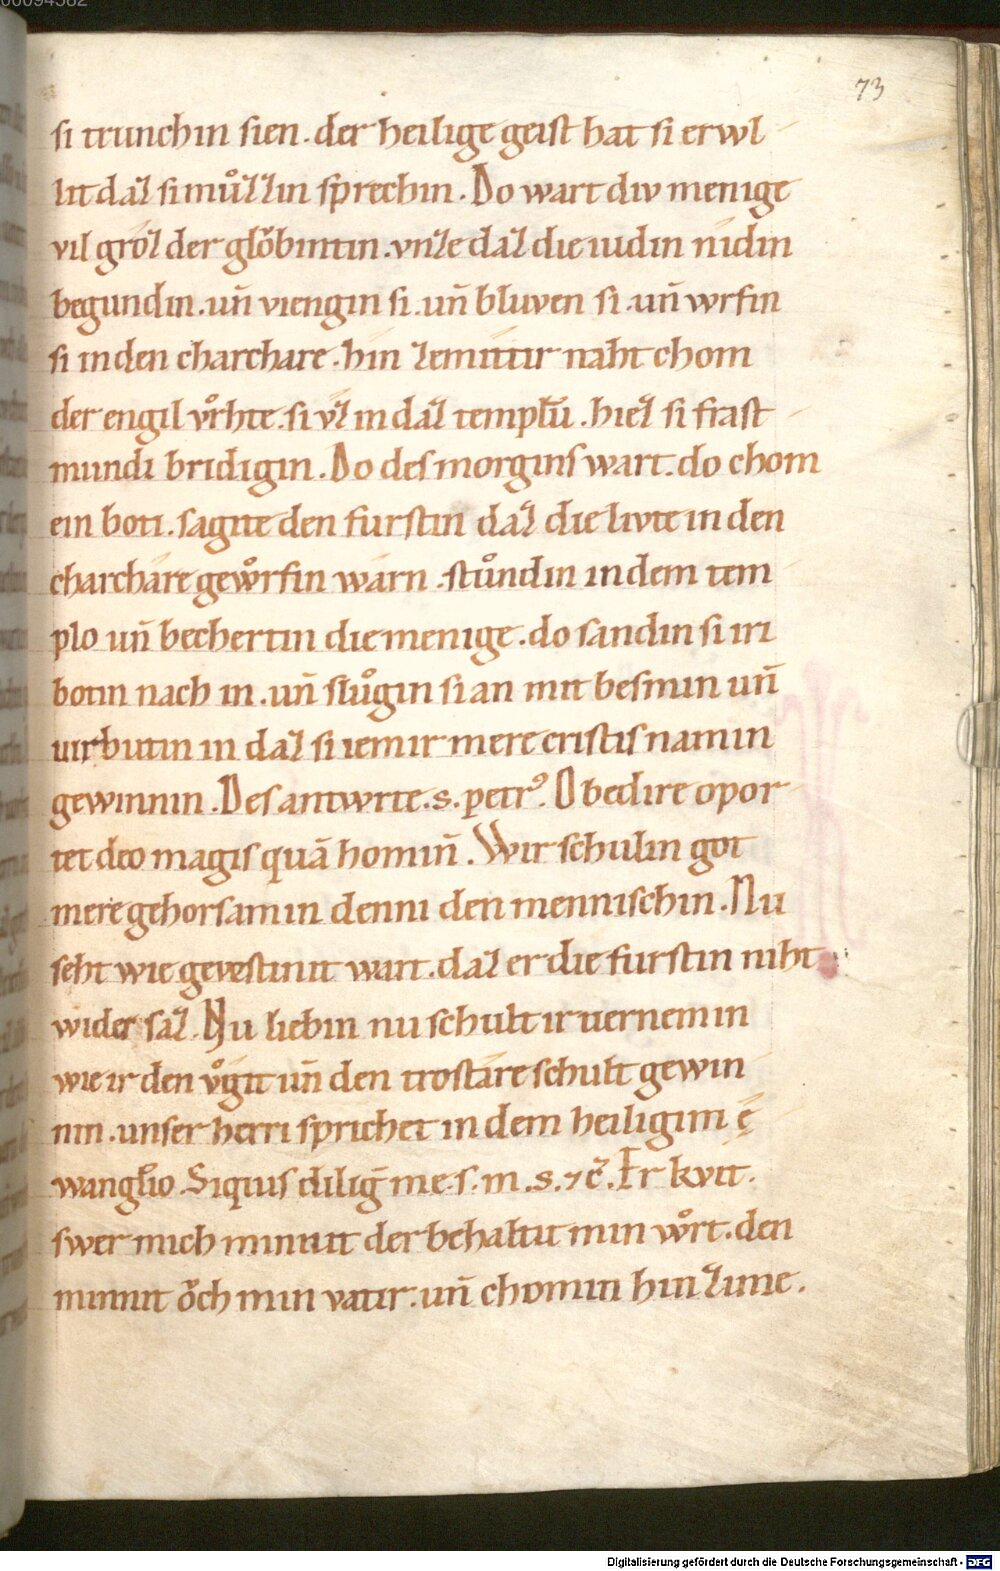 00094582
73
si trunchin sien. der heilige geist hat si erwl
lit daz si muͦzzin sprechin. Do wart div menige
vil groz der gloͮbintin. vnze daz die iudin nidin
begundin. un̄ viengin si. un̄ bluven si. un̄ wrfin
si in den charchare. hin zemittir naht chom
der engil voͮrhte. si vz in daz templū. hiez si frast
mundi bridigin. Do des morgins wart. do chom
ein boti. sagite den furstin daz die livte in den
charchare gewoͮrfin warn. stuͦndin in dem tem
plo un̄ bechertin die menige. do sandin si iri
botin nach in. un̄ sluͦgin si an mit besmin un̄
uirbutin in daz si iemir mere cristis namin
gewinnin. Des antwrte. s. petrꝰ. Obedire opor
tet deo magis quā homin̄. Wir schulin got
mere gehorsam in denni den mennischin. Nu
seht wie gevestinit wart. daz er die furstin niht
wider saz. Nu liebin nu schult ir uernemin
wie ir den voͮgit un̄ den trostare schult gewin
nin. unser herri sprichet in dem heiligim ę
wangl̄io. Siqius diliḡ me. s. m. s. ⁊ c̄. Er kvit.
swer mich minnit der behaltit min woͮrt. den
minnit oͮch min vatir. un̄ chomin hin zime.
Digitalisierung gefördert durch die Deutsche Forschungsgemeinschaft - DFG